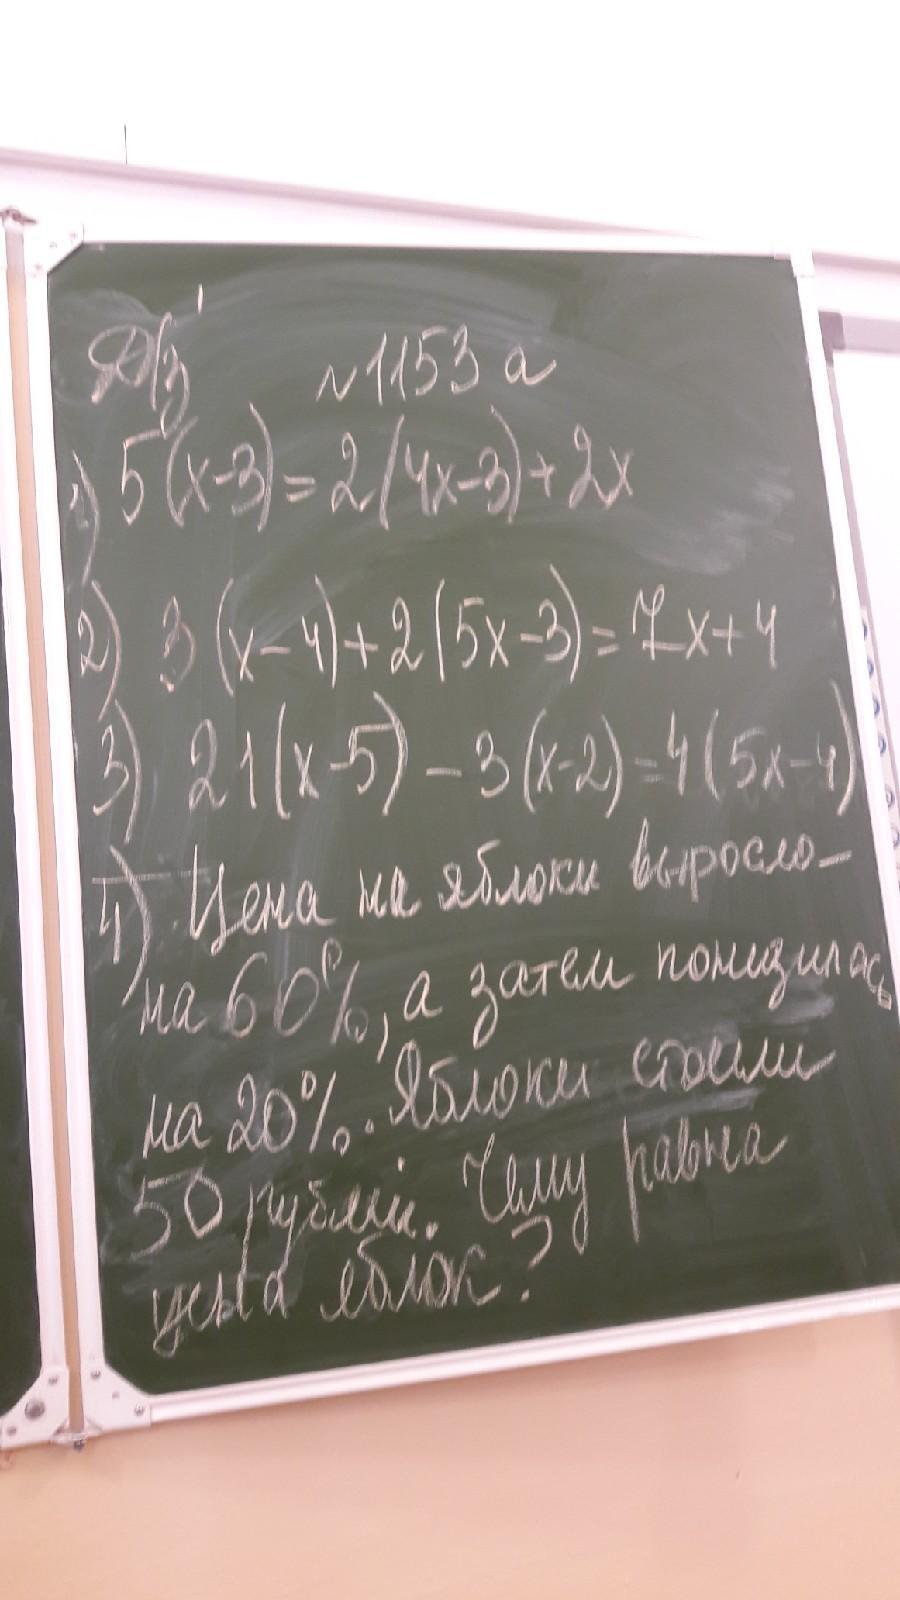 Д/з №1153 а
1) 5(х-3)=2(4х-3)+2х
2) 3(х-4)+2(5х-3)=7х+4
3) 21(х-5)-3(х-2)=4(5х-4)
4) Цена на яблоки выросло-
на 60%, а затем понизилась
на 20%. Яблоки стоили
50 рублей. Чему равна
цена яблок?